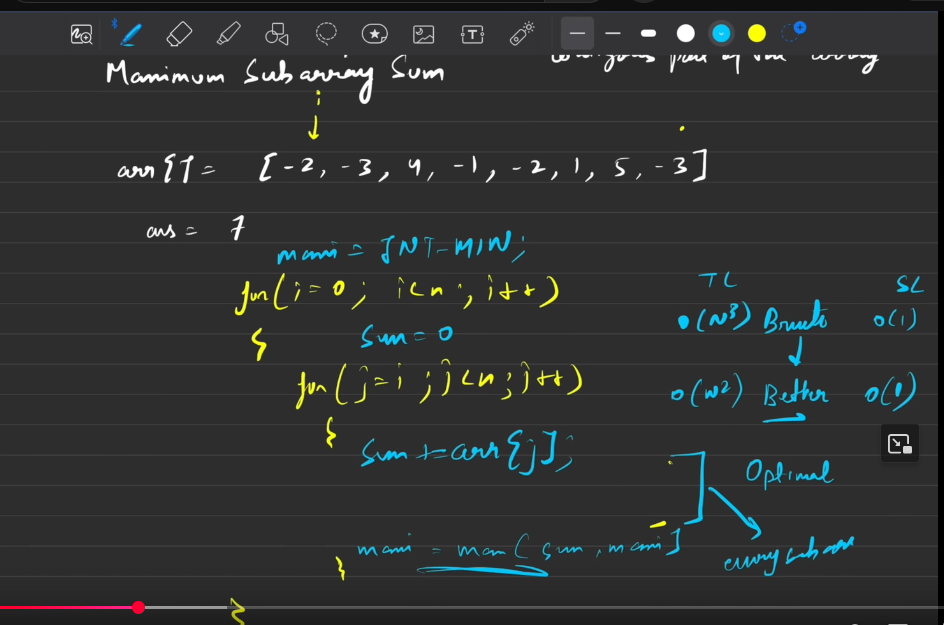 Maximum Subarray Sum
contiguous part of the array
i
arr[] = [-2, -3, 4, -1, -2, 1, 5, -3]
ans = 7
maxi = INT_MIN;
for(i=0; i<n; i++)
{
sum = 0
for(j=i; j<n; j++)
{
sum += arr[j];
maxi = max(sum, maxi)
}
}
TC SC
O(N³) Brute O(1)
O(N²) Better O(1)
Optimal
every subarr
T